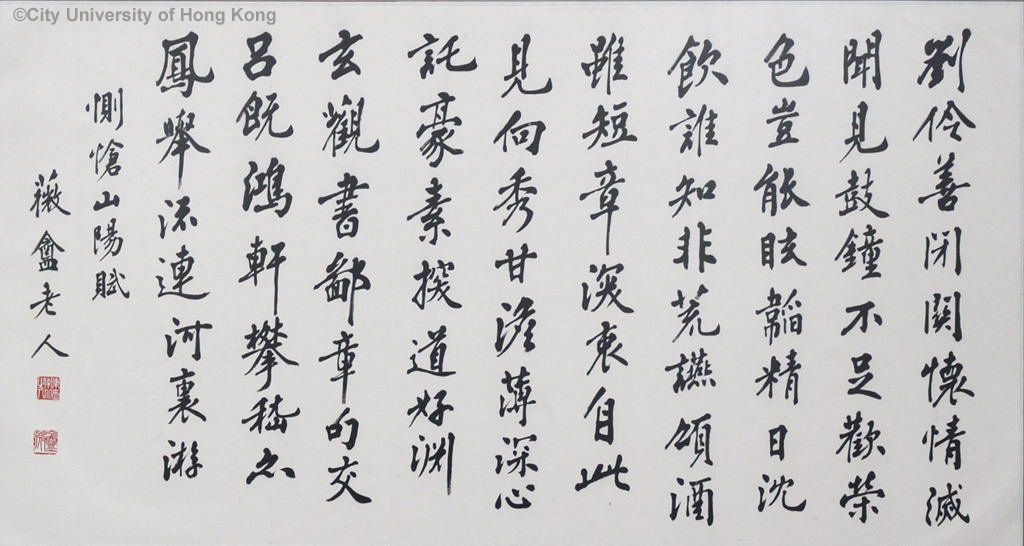 ©City University of Hong Kong
劉伶善閉關懷情滅
聞見鼓鐘不足歡榮
色豈能眩韜精日沈
飲誰知非荒讌頌酒
雖短章深衷自此
見向秀甘澹薄深心
託豪素探道好淵
玄觀書鄙章句交
呂既鴻軒攀嵇亦
鳳舉流連河裏游
惻愴山陽賦
薇盦老人